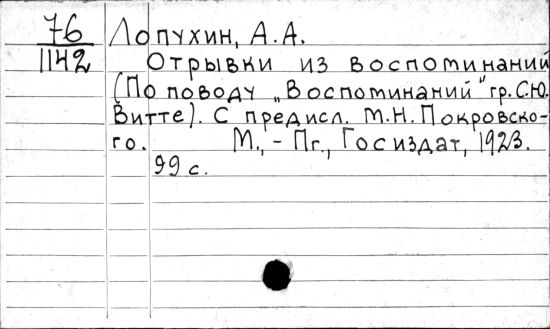 76
1142
Лопухин, А.А.
Отрывки из воспоминаний
(По поводу „Воспоминаний" гр. С.Ю.
Витте). С предисл. М.Н. Покровско-
го. М., - Пг., Госиздат, 1923.
99 с.